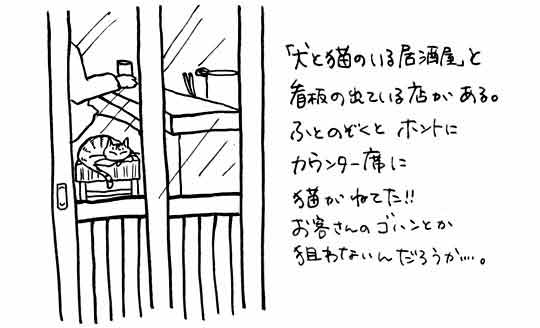 「犬と猫のいる居酒屋」と
看板の出ている店がある。
ふとのぞくと ホントに
カウンター席に
猫がねてた!!
お客さんのゴハンとか
狙わないんだろうか…。